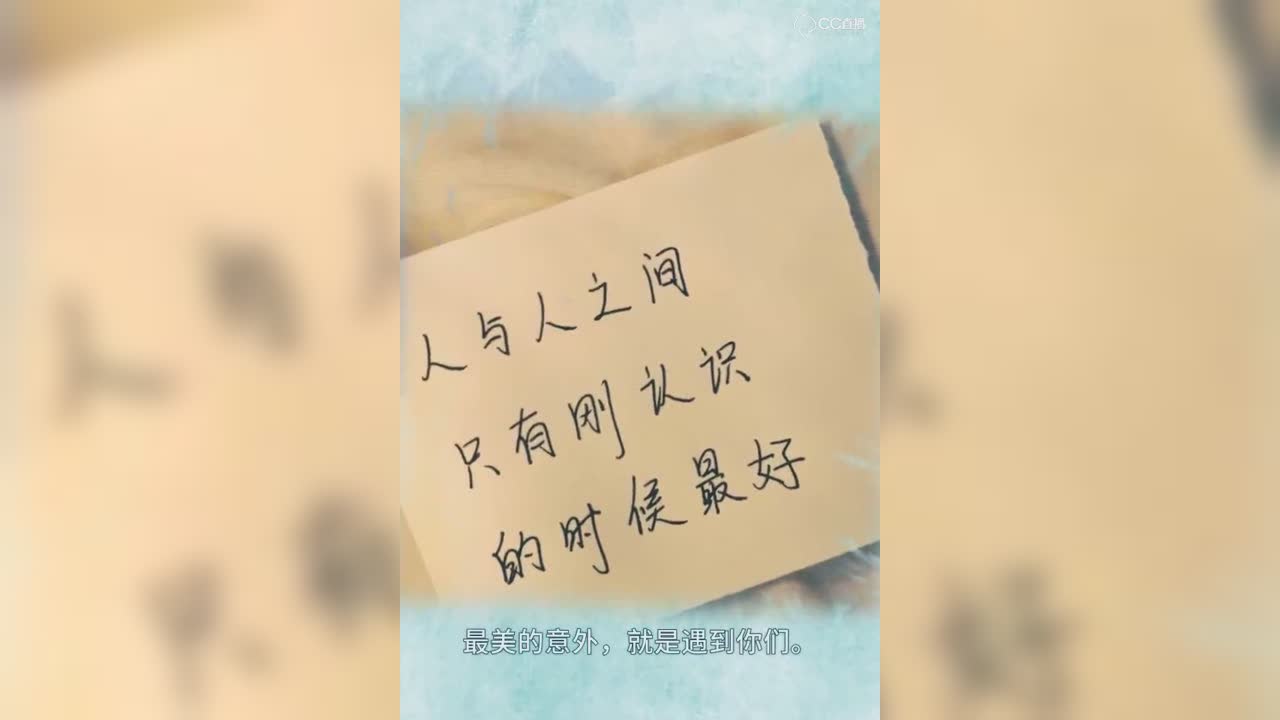 CC直播
人与人之间
只有刚认识
的时候最好
最美的意外，就是遇到你们。